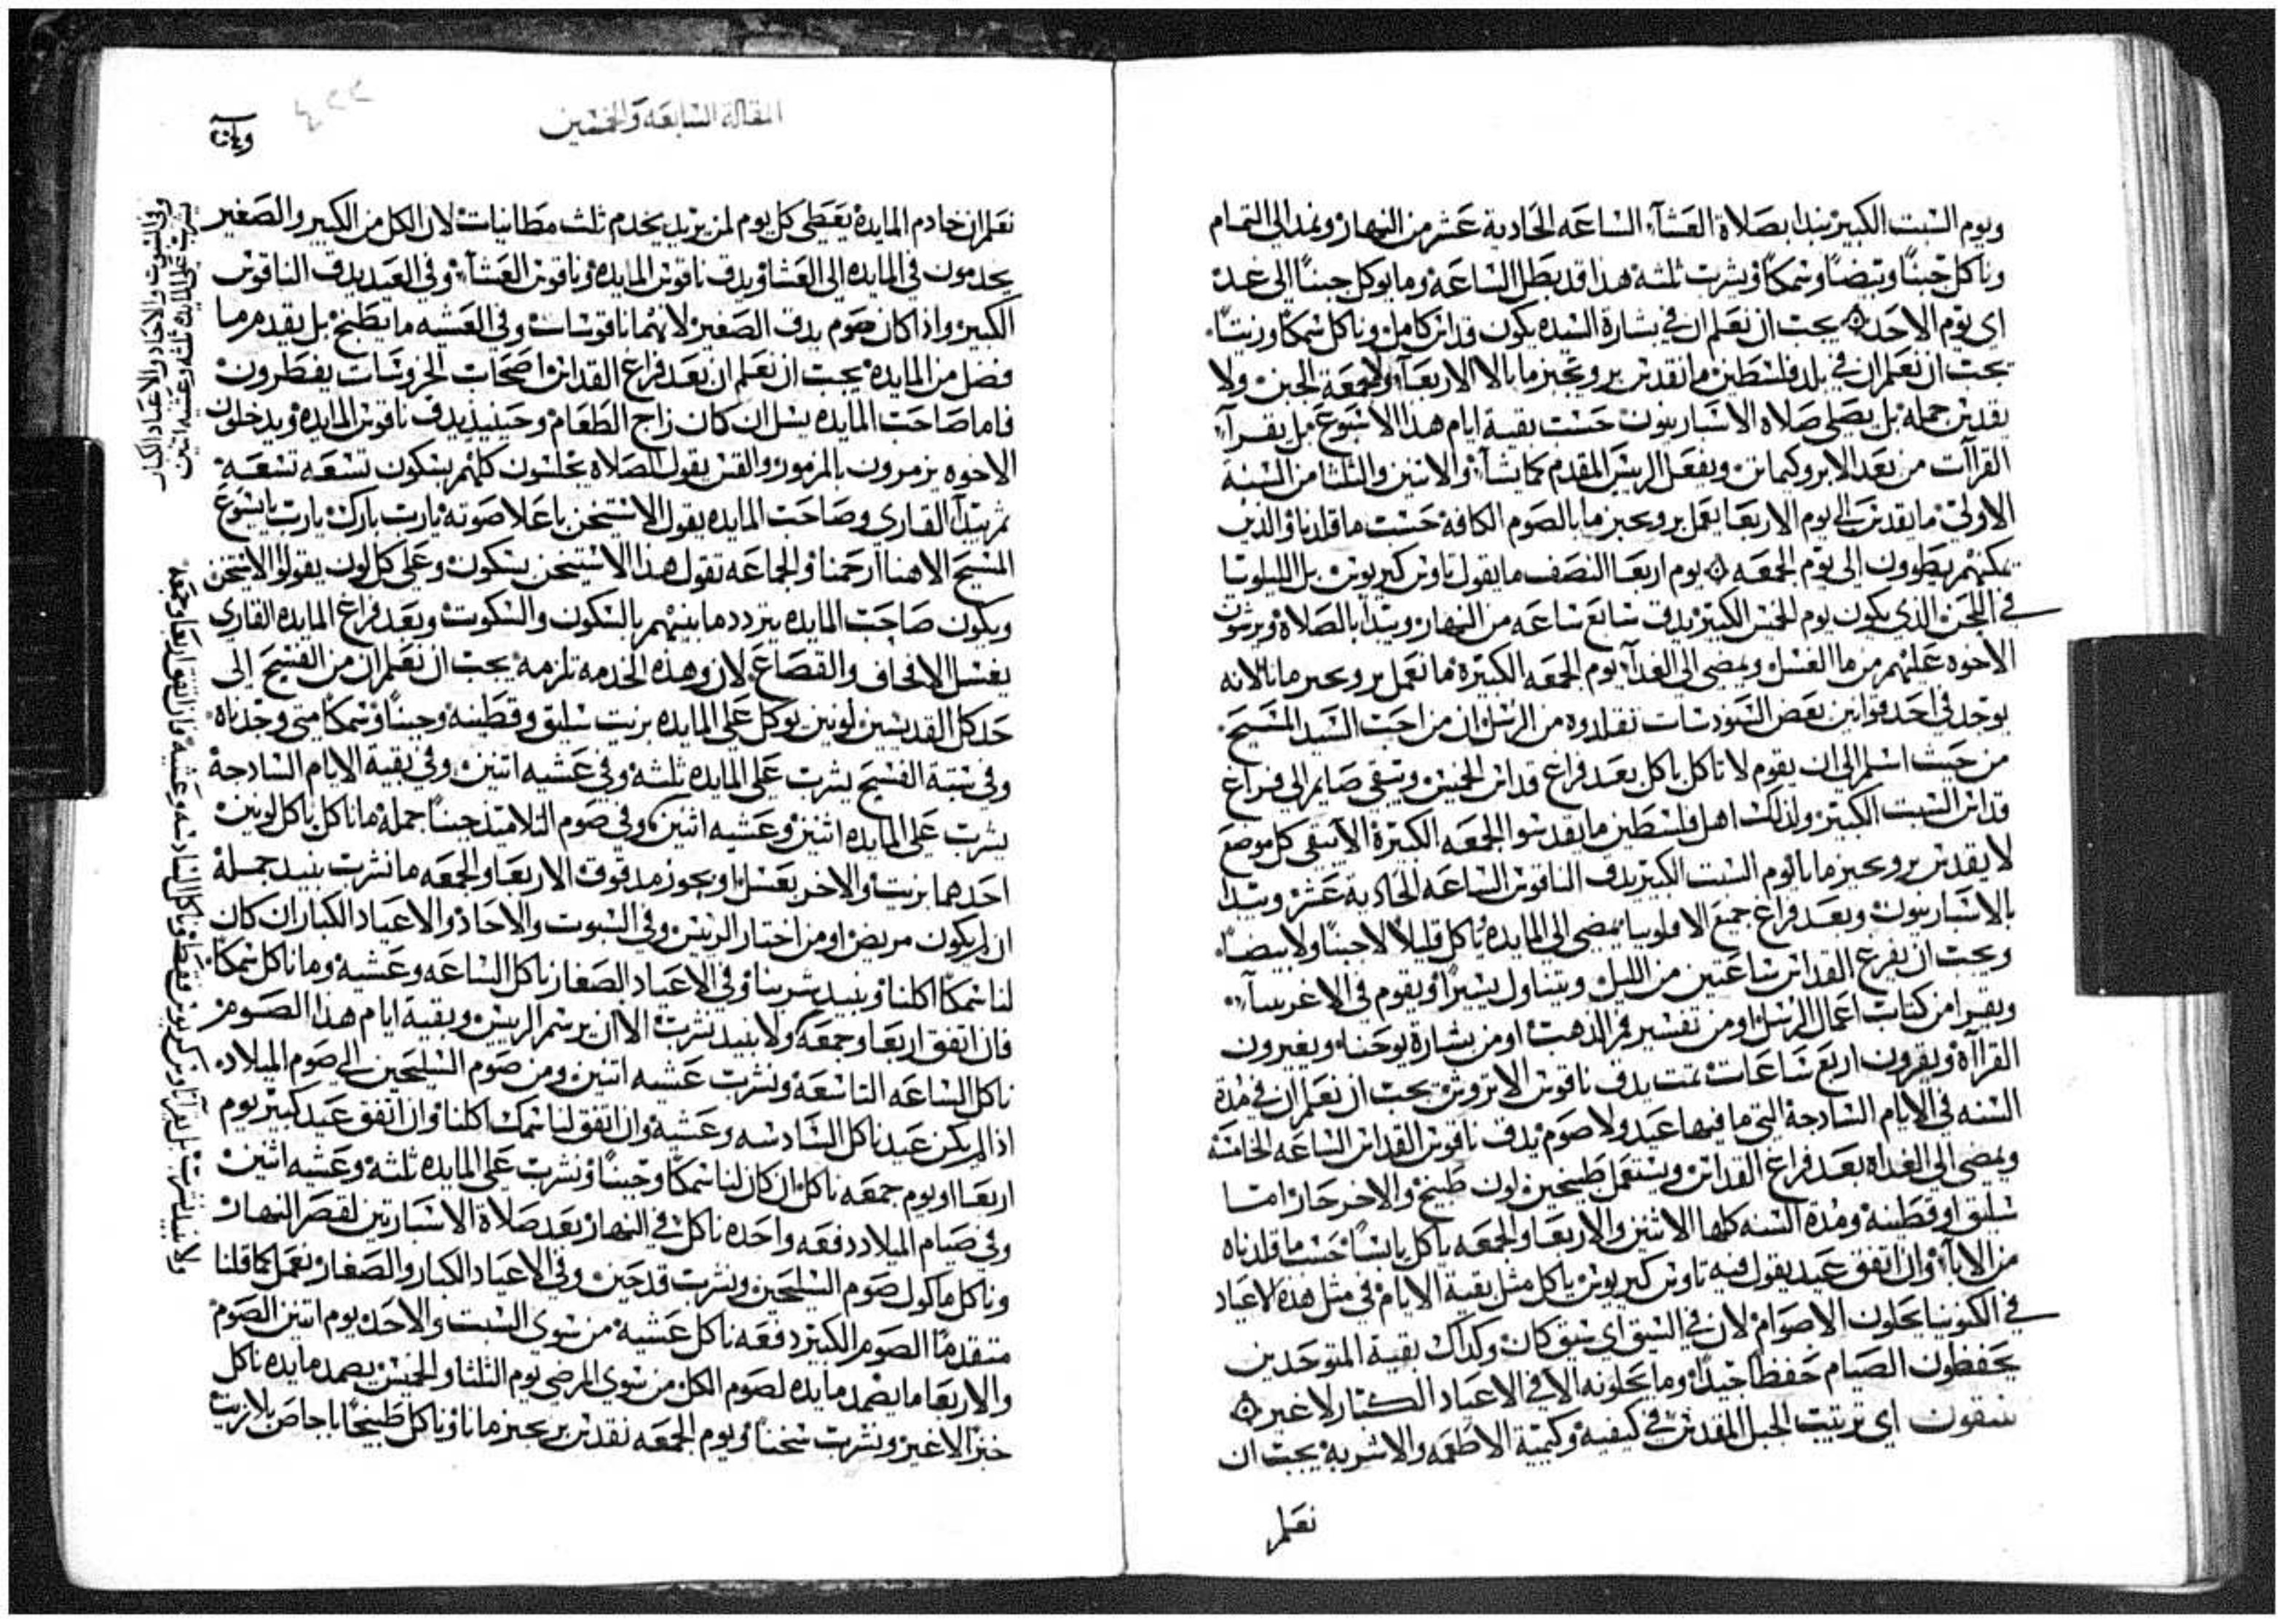 ويوم السبت الكبير نبدا بصلاة العشآء الساعه الحادية عشر من النهار ونمد الى التمام
وناكل جبنًا وبيضًا وسمكًا ونشرب ثلثه هذا قد بطل الساعه وما يوكل جبنًا الى غد
اى يوم الاحد ۞ يجب ان نعلم ان فى بشارة السيده يكون قداس كامل وناكل سمكًا وزيتًا
يجب ان نعلم ان فى بلد فلسطين ما نقدس بروجيزمانا الا الاربعآء ولا جمعة الجبن ولا
نقدس جمله بل نصلى صلاة الاسبارينون حسب بقية ايام هذا الاسبوع بل نقرآ
القرآات من بعد الابروكيمانن ويفعل الريس المقدم كما يشآء والاتنين والثلثا من السبة
الاولى ما نقدس الى يوم الاربعا نعمل بروجيزمانا بالصوم الكافة حسب ما قلدنا والذين
يمكنهم يطوون الى يوم الجمعه ۞ يوم اربعا النصف ما يقول تاوس كيريوس بل الليلويا
فى اللحن الذى يكون يوم الخميس الكبير يدق سابع ساعه من النهار ونبدا بالصلاة ويرشون
الاخوه عليهم من ما الغسل ونمضى الى الغدآ يوم الجمعه الكبيرة ما نعمل بروجيزمانا لانه
يوجد فى احد قوانين بعض السنودسات تقلدوه من الرسل ان من احب السيد المسيح
من حيث اسلم الى ان يقوم لا ناكل ياكل بعد فراغ قداس الخميس ويبقى صايم الى فراغ
قداس السبت الكبير ولذلك اهل فلسطين ما يقدسوا الجمعه الكبيرة الا يبقى كل موضع
لا يقدس بروجيزمانا يوم السبت الكبير يدق الناقوس الساعه الحادية عشر ونبدا
بالاسبارينون وبعد فراغ جميع الافلوبيا نمضى الى المايدة ناكل قليلًا لا جبنًا ولا بيضًا
ويجب ان يفرغ القداس ساعتين من الليل ويتناول يسيرًا ويقوم فى الاغربيآ
ويقرا من كتاب اعمال الرسل او من تفسير فم الذهب او من بشارة يوحنا ويغيرون
القرآة ويقرون اربع ساعات تمت يدق ناقوس الابروبن يجب ان نعلم ان فى مدة
السنه فى الايام السادجة التى ما فيها عيد ولا صوم يدق ناقوس القداس الساعه الخامسة
ونمضى الى الغداة بعد فراغ القداس ويستعمل طبيخين لون طبيخ والاخر حار اما
سليق او قطينة ومدة السنه كلها الاثنين والاربعا والجمعه ياكل يابسًا حسب ما قلدناه
من الابآء وان اتفق عيد يقول فيه تاوس كيريوس ياكل مثل بقية الايام فى مثل هذه الاعياد
فى الكنونيا يحلون الاصوام لان فى السيق اى سيق كان وكداك بقية المتوحدين
يحفظون الصيام حفظًا جيدًا وما يحلونه الا فى الاعياد الكبار لا غير ۞
تيبيقون اى ترتيب الجبل المقدس فى كيفية وكمية الاطعمه والاشربة يجب ان
نعلم
المقالة السابعه والخمسين
نعلم ان خادم المايدة يعطى كل يوم لمن يريد يخدم ثلث مطانيات لان الكل من الكبير والصغير
يخدمون فى المايده الى العشا ويدق ناقوس المايدة وناقوس العشآء وفى العيد يدق الناقوس
الكبير واذا كان صوم يدق الصغير لانهما ناقوسات وفى العشيه ما يطبخ بل يقدم مما
فضل من المايدة يجب ان نعلم ان بعد فراغ القداس اصحاب الخروسات يفطرون
فاما صاحب المايده يسل ان كان زاج الطعام وحينيذ يدق ناقوس المايدة ويدخلون
الاخوه يزمرون بالمزمور والقس يقول الصلاة يجلسون كلهم بسكون تسعه تسعه
ثم يبدآ القارى وصاحب المايده يقول الاستيخن باعلا صوته يارب بارك يارب يايسوع
المسيح الاهنا ارحمنا والجماعه تقول هذا الاستيخن بسكون وعلى كل لون يقولوا الاستيخن
ويكون صاحب المايده يتردد ما بينهم بالسكون والسكوت وبعد فراغ المايده القارى
يغسل الاقحاف والقصاع لان وهذه الخدمه تلزمه يجب ان نعلم ان من الفسيح الى
حد كل القديسين لونين يوكل على المايده بزيت سليق وقطينه وجبنًا وسمكًا متى وجدناه
وفى سبة الفسح يشرب على المايده ثلثة وفى عشيه اتنين وفى بقية الايام السادجة
يشرب على المايده اثنين وعشيه اثنين وفى صوم التلاميذ جبنًا جمله ما ناكل ياكل لونين
احدهما بزيت والاخر بعسل او بجوز مدقوق الاربعا والجمعه ما نشرب نبيد جملة
ان لم يكون مريض او من اختار الريس وفى السبوت والاحاد والاعياد الكبار ان كان
لنا سمكًا اكلنا ونبيد شربنا وفى الاعياد الصغار ناكل الساعه وعشية وما ناكل سمكًا
فان اتفق اربعا وجمعه ولا نبيد نشرب الا ان يرسم الريس وبقية ايام هذا الصوم
ناكل الساعه التاسعة ونشرب عشيه اتنين ومن صوم السليحين الى صوم الميلاد
اذا لم يكن عيد ناكل السادسه وعشية وان اتفق لنا سمك اكلنا وان اتفق عيد كبير يوم
اربعا او يوم جمعه ناكل ان كان لنا سمكًا وجبنًا ونشرب على المايده ثلثة وعشيه اثنين
وفى صيام الميلاد دفعه واحده ناكل فى النهار بعد صلاة الاسبارينن لقصر النهار
وناكل ماكول صوم السليحين ونشرب قدحين وفى الاعياد الكبار والصغار نعمل كما قلنا
متقدمًا الصوم الكبير دفعه ناكل عشية من سوى السبت والاحد يوم اتنين الصوم
والاربعا ما يضمد مايده لصوم الكل من سوى المرضى يوم الثلثا والخميس يصمد مايده ناكل
خبز الاغير ونشرب سخنًا ويوم الجمعه نقدس بريجيزمانا وناكل طبيخًا باجاص بلا زيت
وفى السبوت والاحاد والاعياد الكبار
يشرب على المايده ثلثه وعشيه اتنين
فان اتفق اربعا وجمعه
ولا نبيد نشرب